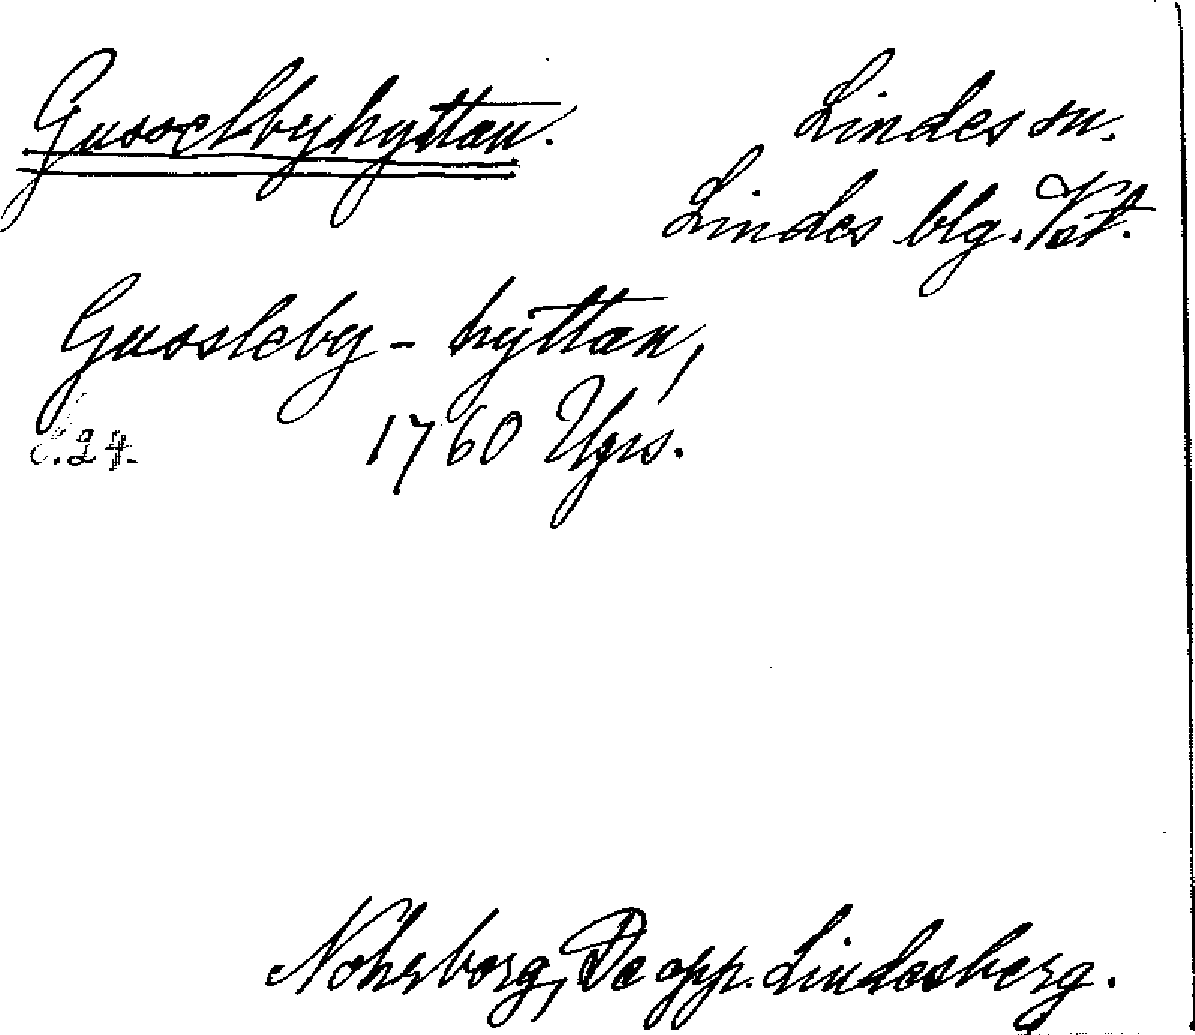 Gusselbyhyttan.
Lindes sn.
Lindes blg. Vst.
Gussleby-hyttan,
s. 24. 1760 Ugrs.
Nohrborg, De opp. Lindesberg.